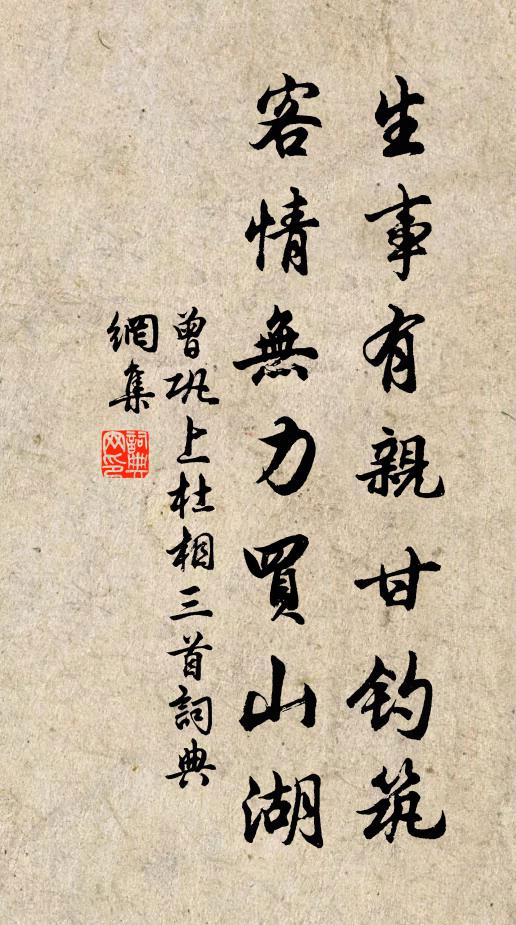 生事有親甘钓筑
客情無力買山湖
曾巩上杜相三首詞典
網集
詞典网印